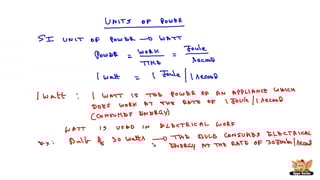 UNITS OF POWER
SI UNIT OF POWER → WATT
POWER = WORK / TIME = Joule / second
1 Watt = 1 Joule / 1 second
1 Watt : 1 WATT IS THE POWER OF AN APPLIANCE WHICH
DOES WORK AT THE RATE OF 1 Joule / 1 second
(CONSUMES ENERGY)
WATT IS USED IN ELECTRICAL WORK
Ex: Bulb of 30 WATTS → THE BULB CONSUMES ELECTRICAL
ENERGY AT THE RATE OF 30 Joule / second